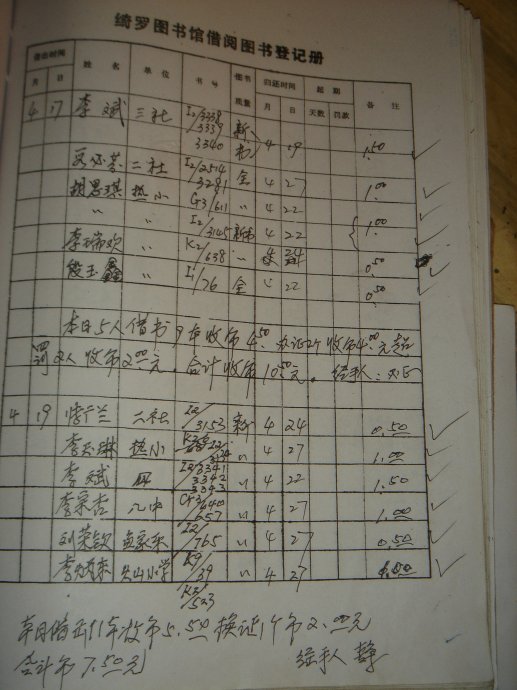 绮罗图书馆借阅图书登记册
借出时间 姓名 单位 书号 图书质量 归还时间 超期 备注
月 日 月 日 天数 罚款
4 17 李斌 三社 I2/3338 新
3339
3340 4 19 1.50
二社 I2/2514 全
3281 4 27 1.00
胡思琪 热小 G3/611 〃 4 22
〃 〃 I2/3145 4 22 1.00
李瑞欢 〃 K2/638 〃 24 0.50
段玉鑫 〃 I/76 全 〃 22 0.50
本日5人借书9本收币4.50 办证2个收币4.00元超
罚2人收币2.00元。合计收币10.50元。经手人:
4 19 兰 二社 I2/3153 新 4 24 0.50
李玉琳 热小 4 27 1.00
李斌 I2/3341
3342
3343 〃 4 22 1.50
李家吉 八中 G3/640
357 〃 4 27 1.00
刘荣钦 I2/765 〃 4 27 0.50
尖山小学 K9/39 〃 4 27
K2/523
本日借出11本收币5.50 换证1个币2.00元
合计币7.50元 经手人